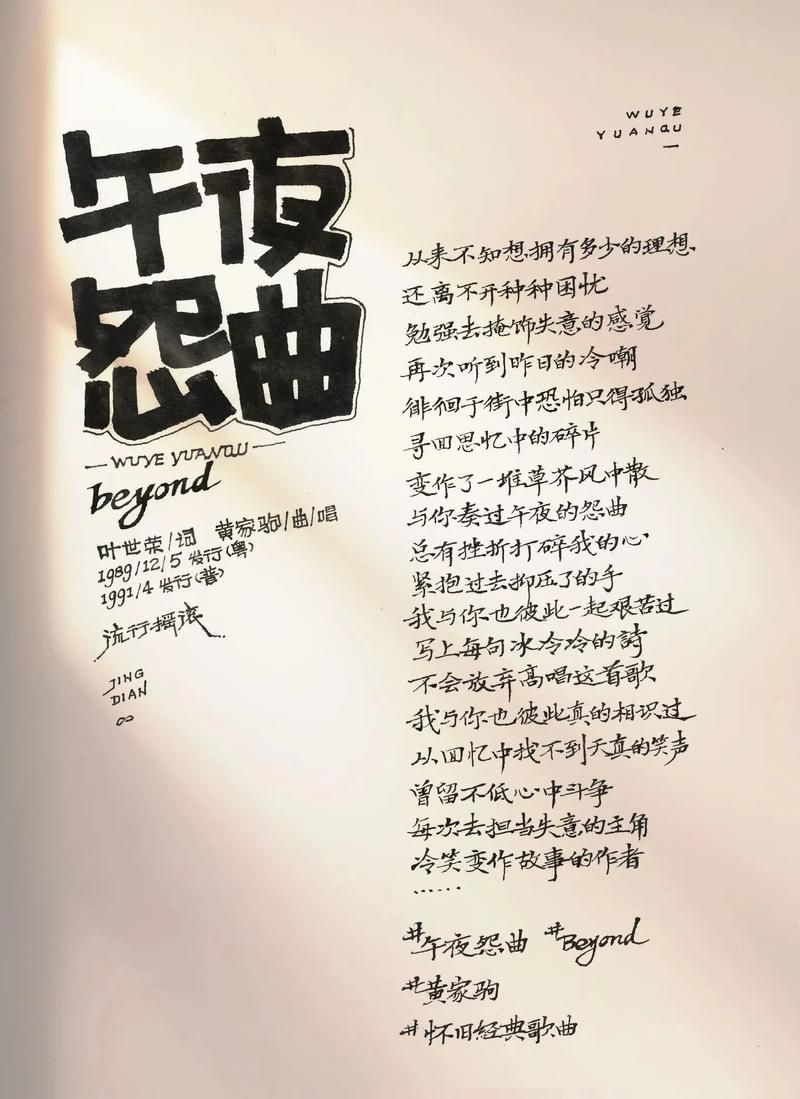 午夜
怨曲
WUYE YUANQU
beyond
叶世荣/词 黄家驹/曲/唱
1989/12/5 发行(粤)
1991/4 发行(普)
流行摇滚
JING
DIAN
∞
WUYE
YUANQU
从来不知想拥有多少的理想
还离不开种种困忧
勉强去掩饰失意的感觉
再次听到昨日的冷嘲
徘徊于街中恐怕只得孤独
寻回思忆中的碎片
变作了一堆草芥风中散
与你奏过午夜的怨曲
总有挫折打碎我的心
紧抱过去抑压了的手
我与你也彼此一起艰苦过
写上每句冰冷冷的詩
不会放弃高唱这首歌
我与你也彼此真的相识过
从回忆中找不到天真的笑声
曾留不低心中斗争
每次去担当失意的主角
冷笑变作故事的作者
……
#午夜怨曲 #Beyond
#黄家驹
#怀旧经典歌曲